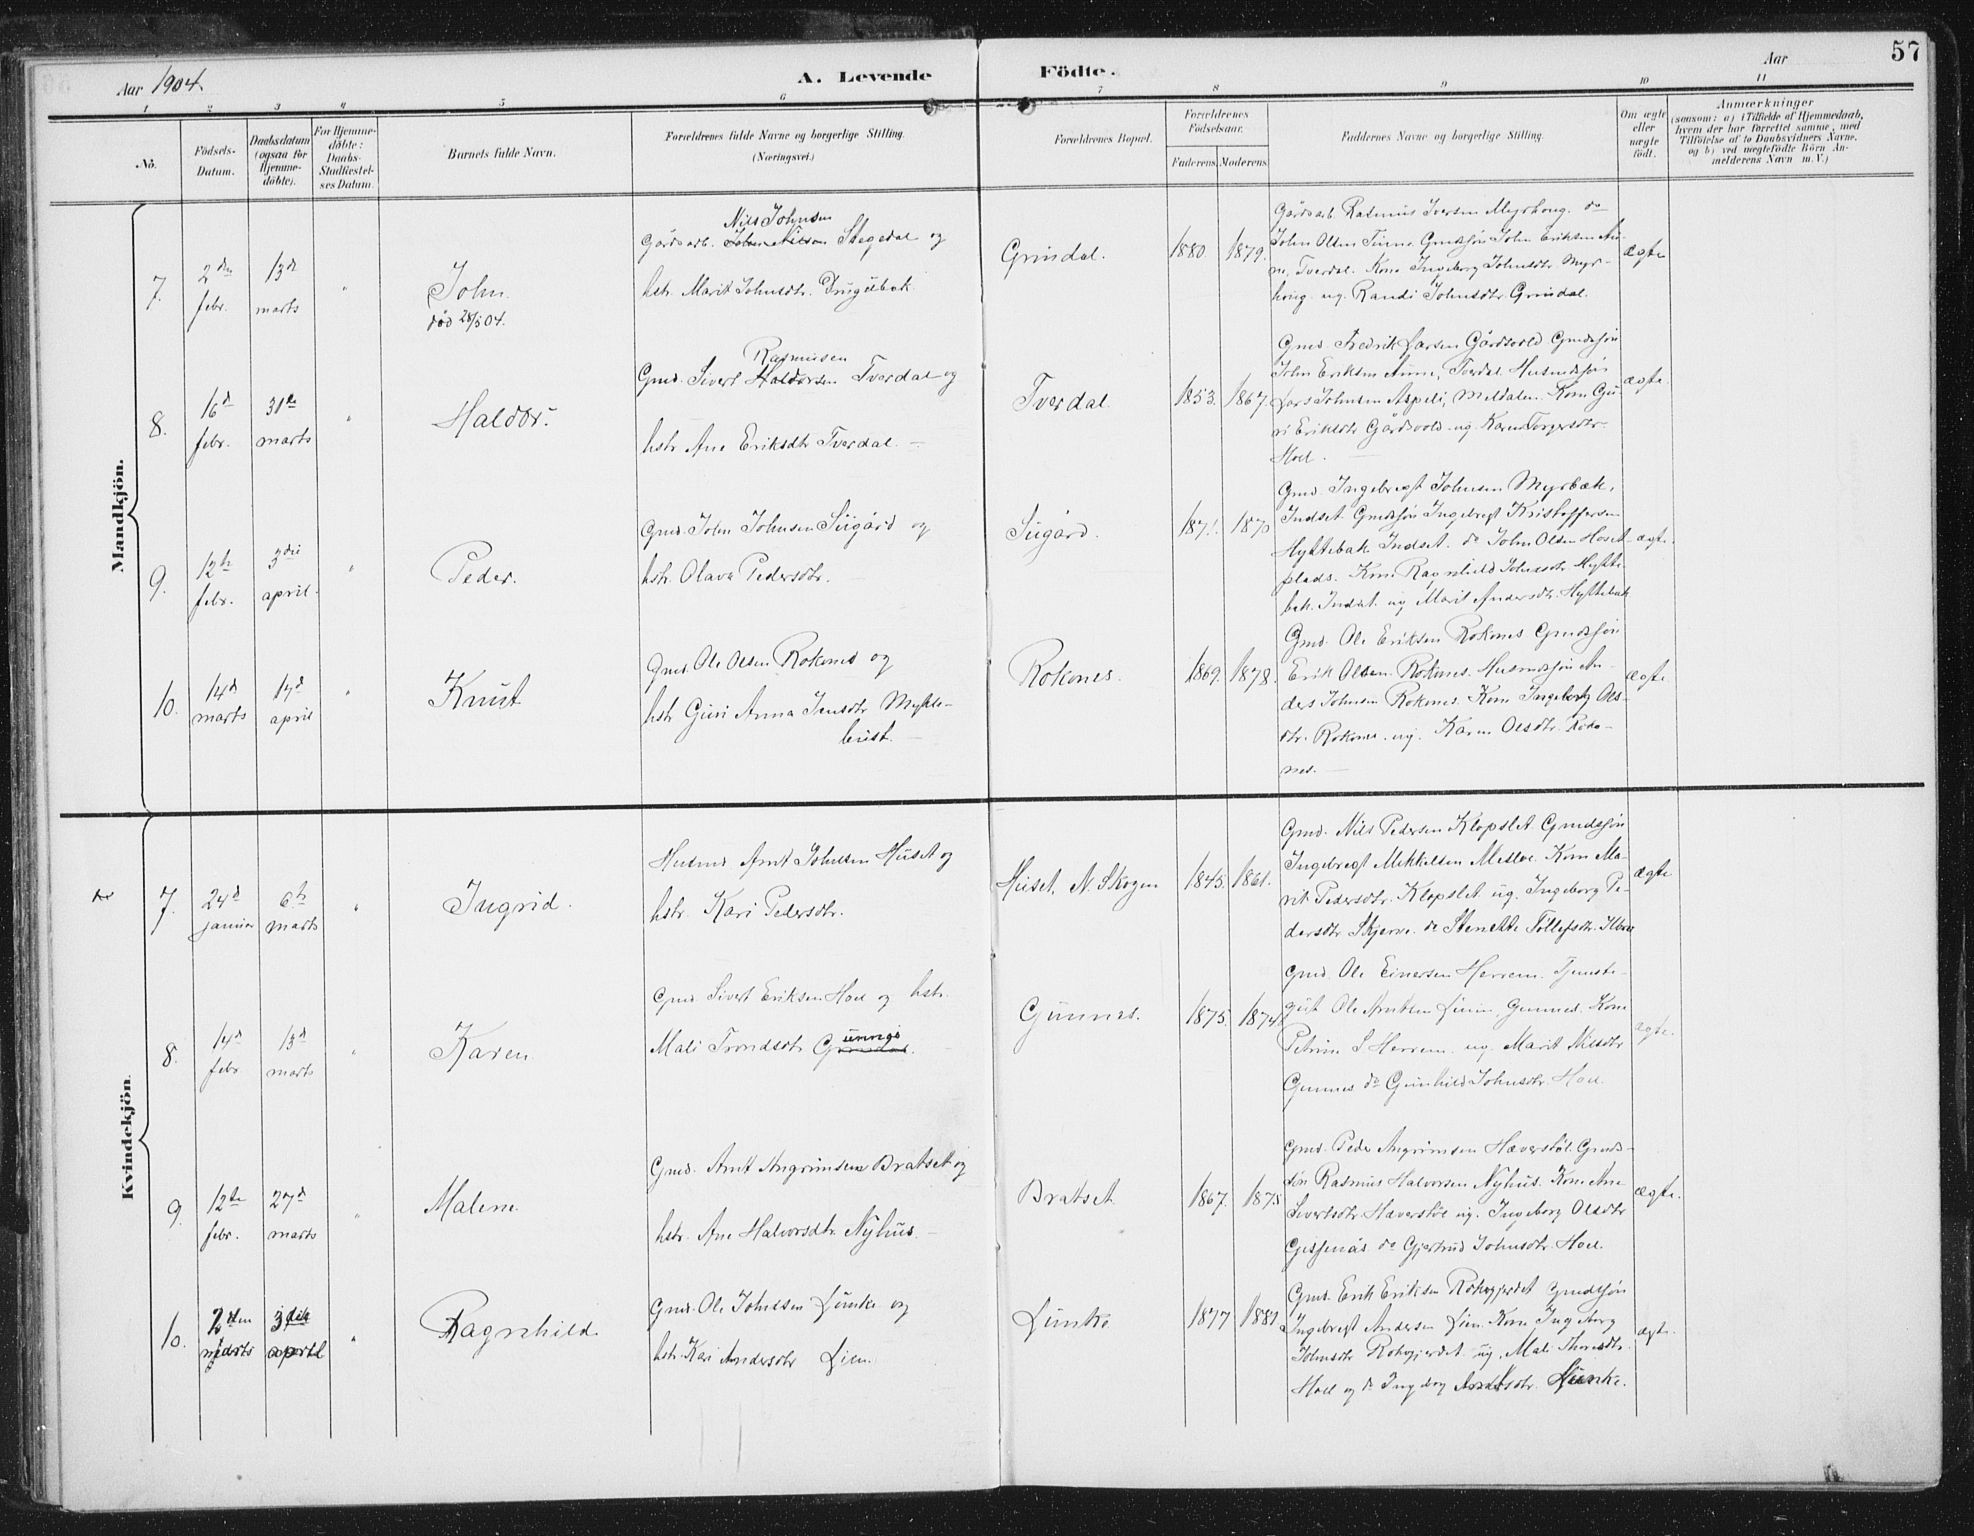 57
Aar 1904.
A. Levende Födte.
Aar
1 2 3 4 5 6 7 8 9 10 11
No.
Födsels-Datum.
Daabsdatum (ogsaa for Hjemme-döbte).
For Hjemme-döbte: Daabs-Stadfæstel-ses Datum.
Barnets fulde Navn.
Forældrenes fulde Navne og borgerlige Stilling. (Næringsvei.)
Forældrenes Bopæl.
Forældrenes Födselsaar.
Faderens Moderens
Faddernes Navne og borgerlige Stilling.
Om ægte eller uægte födt.
Anmærkninger
(saasom: a) i Tilfælde af Hjemmedaab,
hvem der har forrettet samme, med
Tilföielse af to Daabsvidners Navne,
og b) ved uægtefödte Börn An-
melderens Navn m. V.)
Mandkjön.
7. 2den febr. 13d marts "
John.
død 28/5 04.
Nils Johnsen
Gårdarb. John Nilsen Stegedal og
hstr. Marit Johnsdtr. Drugubak.
Grindal.
1880. 1879.
Gårdarb Rasmus Iversen Myrhaug. do
John Olsen Gmdsjøn John Eriksen Au-
ne, Tverdal. Kone Ingeborg Johnsdtr. Myr-
haug. ug. Randi Johnsdtr. Grindal.
ægte
8. 16d febr. 31te marts "
Haldor.
Rasmusen
Gmd. Sivert Haldorsen Tverdal og
hstr Ane Eriksdtr Tverdal. —
Tverdal.
1853. 1867.
Gmd. Fredrik Larsen Gårdsvold Gmdsjøn
John Eriksen Aune, Tverdal. Husmdsjøn
Lars Johnsen Aspeli, Meldalen. Kone Gu-
ri Eriksdtr Gårdsvold. ug. Karen Torgersdtr.
Hoel. —
ægte.
9. 12te febr. 3die april. "
Peder.
Gmd. John Johnsen Sugård og
hstr. Olava Pedersdtr. —
Sugård.
1871. 1870
Gmd. Ingebregt Johnsen Myrbæk,
Indset. Gmdsjøn Ingebregt Kristoffersen
Hyttebak Indset. do John Olsen Hoset-
plads. Kone Ragnhild Johnsdtr. Hytte-
bak. Indset. ug Marit Andersdtr. Hyttebak
ægte.
10. 14d marts 17d april "
Knut
Gmd. Ole Olsen Rokones og
hstr Guri Anna Jensdtr Mykle-
bust. —
Rokones.
1869. 1878.
Gmd. Ole Eriksen Rokones Gmdsjøn
Erik Olsen Rokones. Husmdsjøn An-
ders Johnsen Rokones. Kone Ingeborg Ols-
dtr. Rokones. ug. Karen Olsdtr. Roko-
nes. —
ægte.
Kvindekjön.
7. 24d januar 6te marts "
Ingrid.
Husmd Arnt Johnsen Huset og
hstr. Kari Pedersdtr.
Huset, N. Skogen
1845. 1861.
Gmd. Nils Pedersen Klopslet Gmdsjøn
Ingebregt Mikkelsen Mesloe. Kone Ma-
rit Pedersdtr. Klopslet ug. Ingeborg Pe-
dersdtr Skjerve. do Stenette Tollefsdtr.
ægte
8. 14d febr 13d marts "
Karen.
Gmd. Sivert Eriksen Hoel og hstr.
Mali Trondsdtr Gunnes.
Gunnes.
1875. 1874.
Gmd. Ole Einersen Herrem. Tjeneste-
gut Ole Arntsen Gunnes. Kone
Petrine S Herrem. ug. Marit Nilsdtr
Gunnes do Gunhild Johnsdtr. Hoel.
ægte.
9. 12te febr. 27d marts "
Malene
Gmd. Arnt Angrimsen Bratset og
hstr. Ane Halvorsdtr. Nyhus. —
Bratset
1867. 1875
Gmd. Peder Angrimsen Hæverstøl. Gmds-
søn Rasmus Halvorsen Nyhus. Kone Ane
Sivertsdtr. Hæverstøl ug. Ingeborg Olsdtr
Gisnås. do Gjertrud Johnsdtr. Hoel.
ægte.
10. 2den marts 3die april "
Ragnhild.
Gmd. Ole Johnsen Lunke og
hstr. Kari Andersdtr Lien.
Lunke
1877 1881
Gmd. Erik Eriksen Rokvgjerdet Gmdsjøn
Ingebregt Andersen Lien. Kone Ingeborg
Johnsdtr Rokvgjerdet. ug. Mali Thoresdtr.
Hoel og do Ingeborg Arntsdtr. Lunke.
ægte.